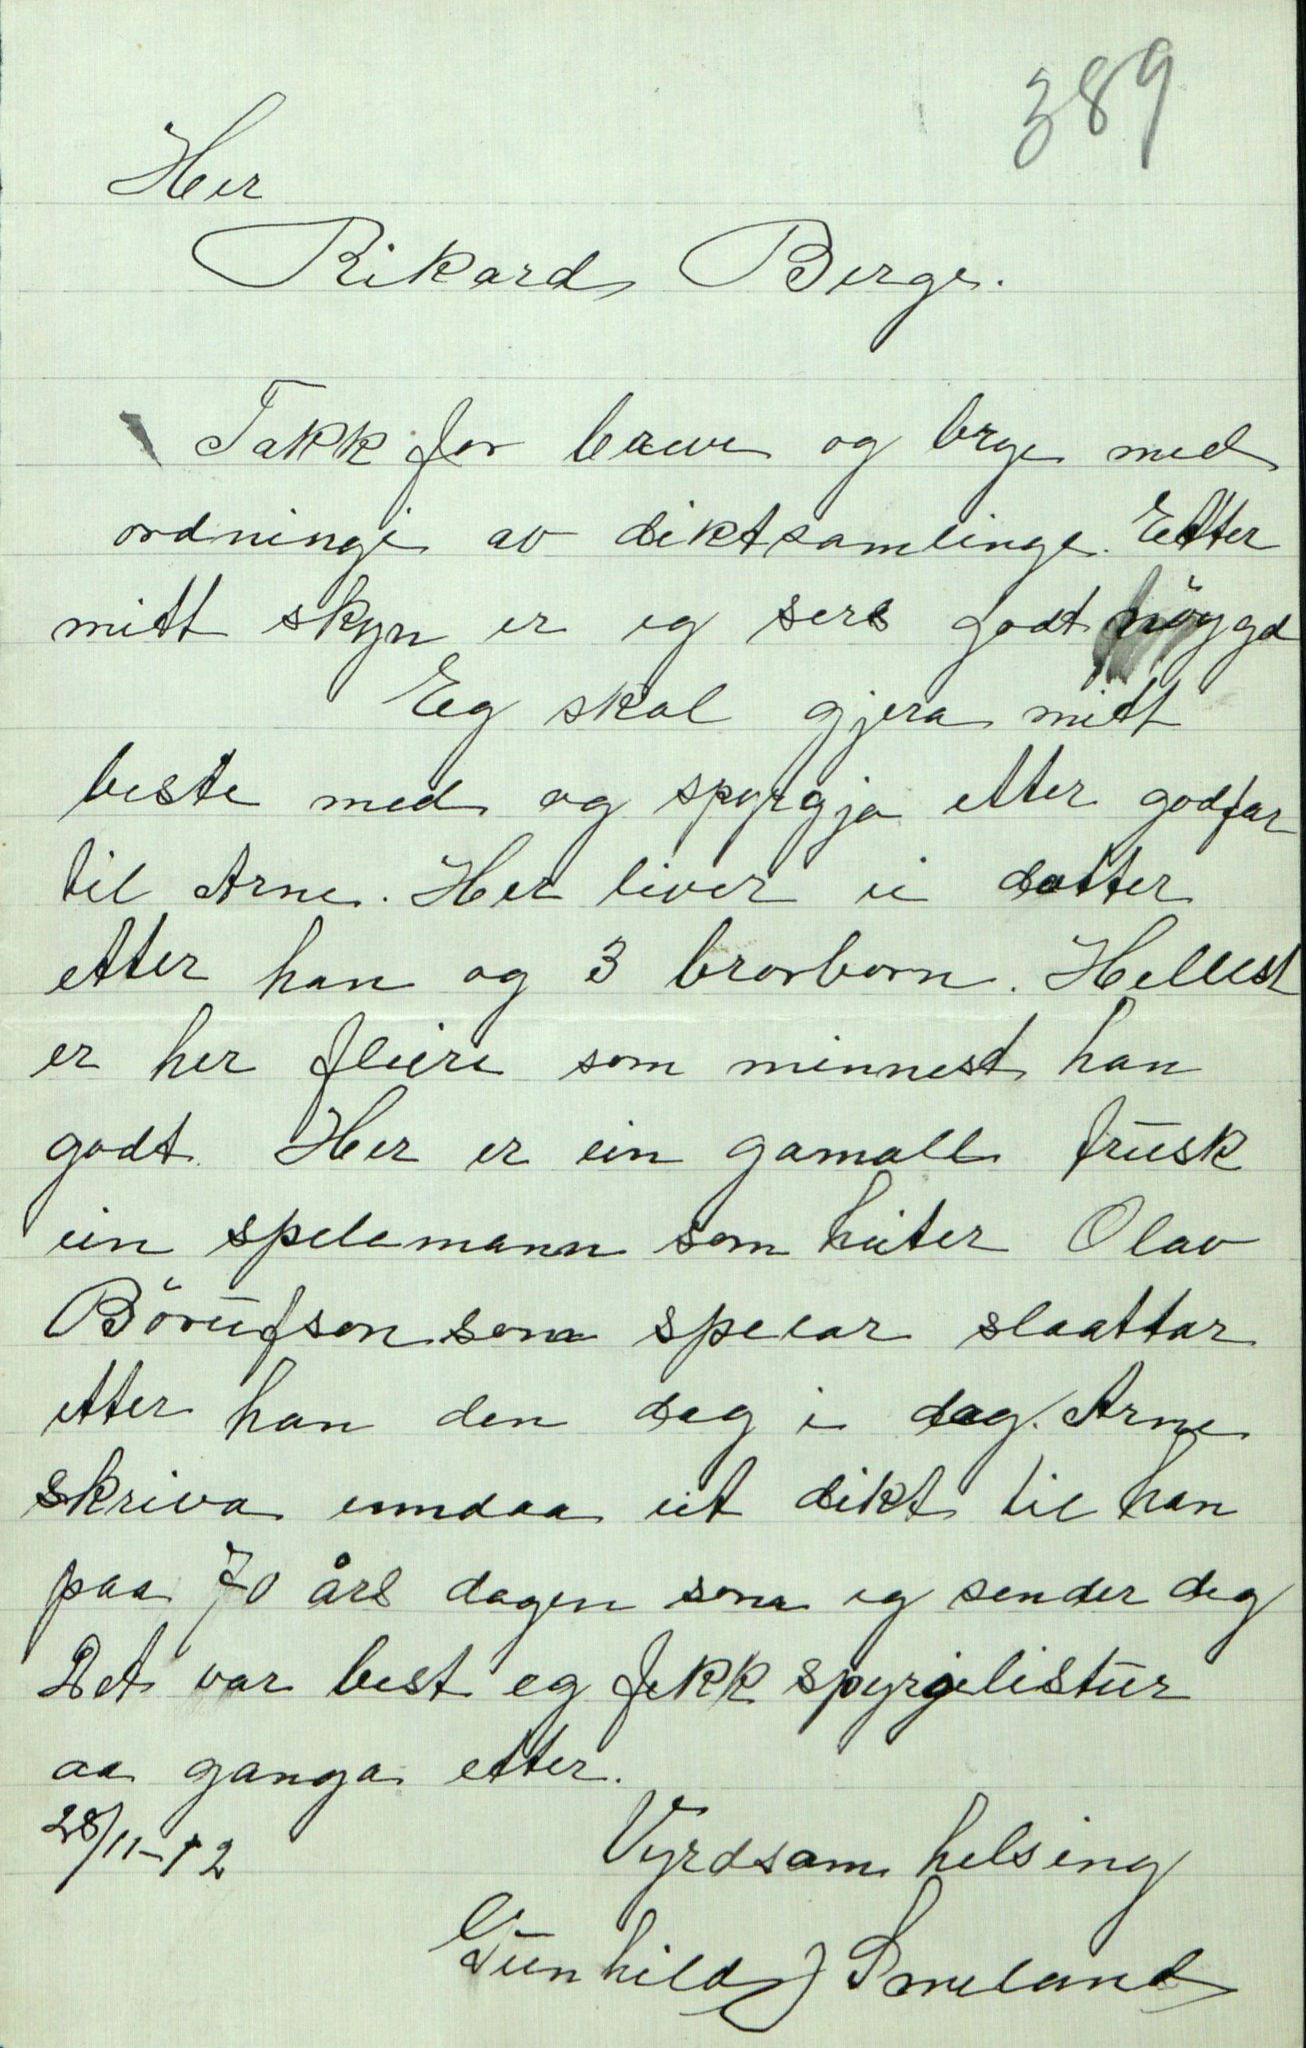 389
Her
Rikard Berge.
Takk for breve og brye med
ordningi av diktsamlinge. Etter
mitt skyn er eg sers godt nöygd
Eg skal gjera mitt
beste med og spyrgja etter godfar
til Arne. Her liver ei dotter
etter han og 3 brorborn. Hellest
er her fleire som minnest han
godt. Her er ein gamall frusk
ein spelemann som heiter Olav
Börufson som spelar slaattar
etter han den dag i dag. Arne
skriva enndaa eit dikt til han
paa 70 års dagen som eg sender deg
Det var best eg fekk spyrjelistur
aa ganga etter.
28/11-12
Vyrdsam helsing
Gunhild J Smeland